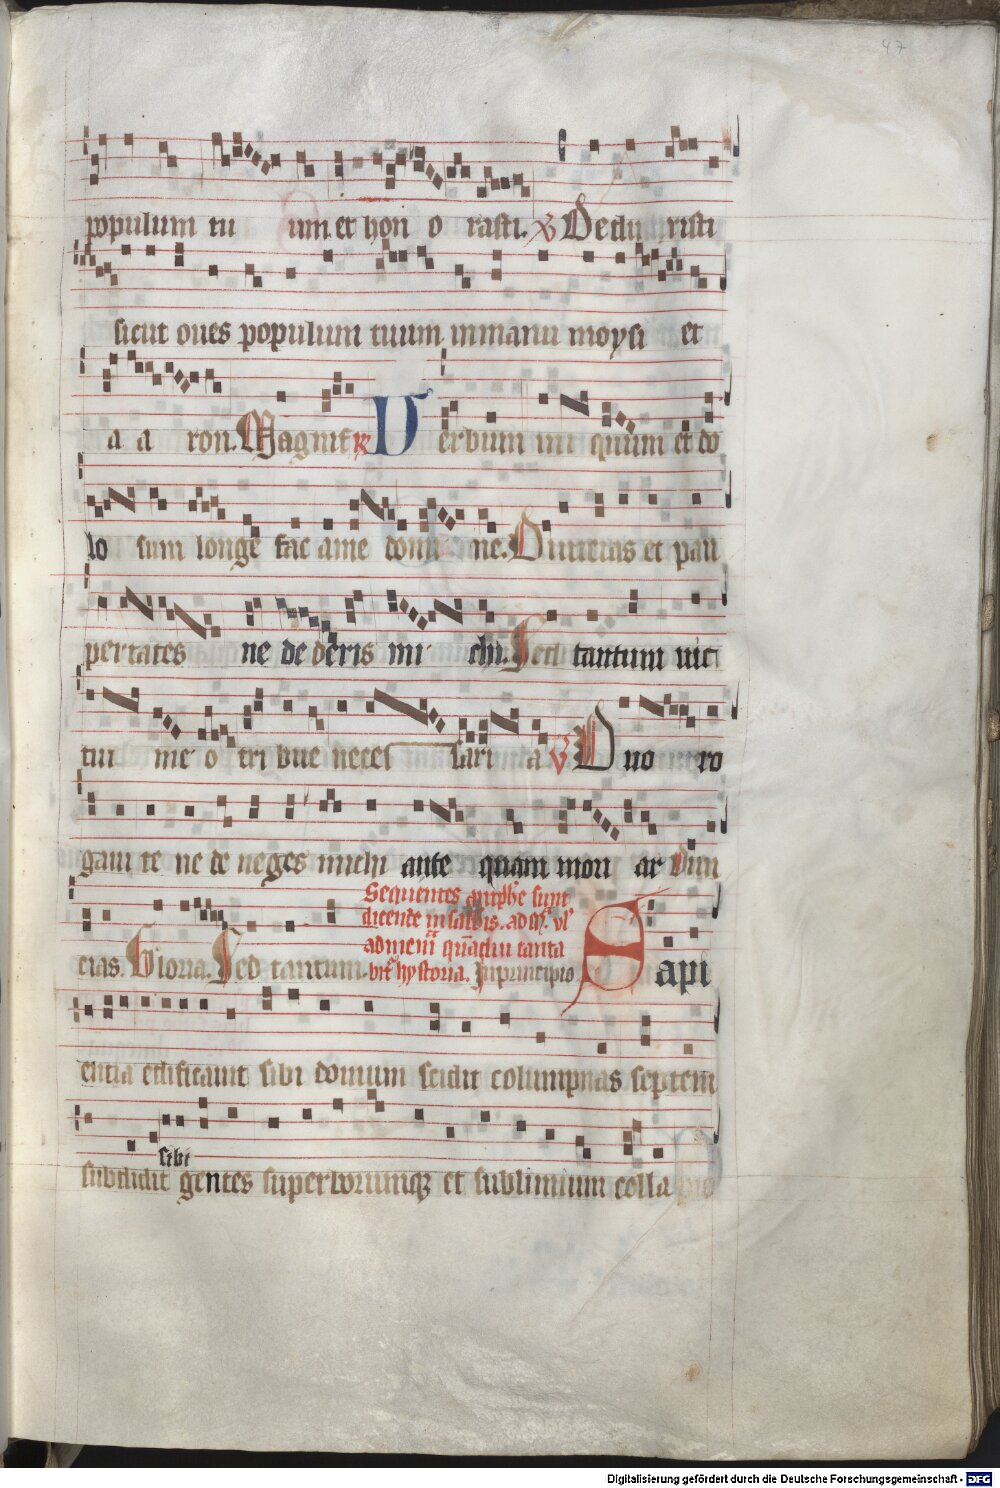 47
populum tu um et hon o rasti. V Deduxisti
sicut oues populum tuum inmanu moysi et
a a ron. Magnif R Verbum ini quum et do
lo sum longe fac ame domi ne. Diuicias et pau
pertates ne de deris mi chi. Sed tantum uic
tui me o tri bue neces sari a V Duo ro
gaui te ne de neges michi ante quam mori ar Diui
cias. Gloria. Sed tantum.
Sequentes antiphe sunt
dicende in sabbis. ad
quadiu canta
hystoria. Inprincipio Sapi
entia edificauit sibi domum scidit columpnas septem
sibi
subdidit gentes superborumq et sublimium colla
Digitalisierung gefördert durch die Deutsche Forschungsgemeinschaft - DFG